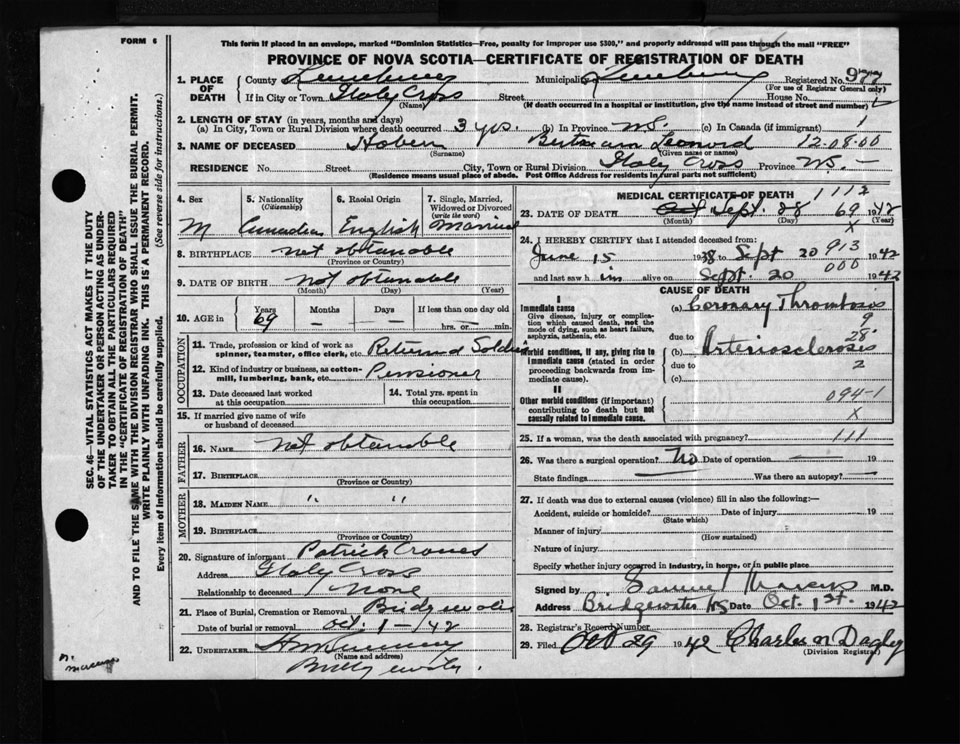 FORM 6
This form if placed in an envelope, marked "Dominion Statistics—Free, penalty for improper use $300," and properly addressed will pass through the mail "FREE"
PROVINCE OF NOVA SCOTIA—CERTIFICATE OF REGISTRATION OF DEATH
1. PLACE OF DEATH
County Lunenburg Municipality Lunenburg Registered No.
(For use of Registrar General only)
If in City or Town Italy Cross Street House No.
(Name) (If death occurred in a hospital or institution, give the name instead of street and number)
2. LENGTH OF STAY (in years, months and days)
(a) In City, Town or Rural Division where death occurred 3 yrs. (b) In Province N.S. (c) In Canada (if immigrant)
3. NAME OF DECEASED Hobern Bertram Leonord 12-08-00
(Surname) (Given name or names)
RESIDENCE No. Street City, Town or Rural Division Italy Cross Province N.S.
(Residence means usual place of abode. Post Office Address for residents in rural parts not sufficient)
4. Sex 5. Nationality (Citizenship) 6. Racial Origin 7. Single, Married, Widowed or Divorced (write the word)
M Canadian English Married
8. BIRTHPLACE not obtanable
(Province or County)
9. DATE OF BIRTH not obtanable
(Month) (Day) (Year)
10. AGE in Years Months Days If less than one day old
69 – – hrs. or min.
OCCUPATION
11. Trade, profession or kind of work as spinner, teamster, office clerk, etc. Returned Soldier
12. Kind of industry or business, as cotton-mill, lumbering, bank, etc. Pensioner
13. Date deceased last worked at this occupation 14. Total yrs. spent in this occupation
15. If married give name of wife or husband of deceased
FATHER
16. Name not obtanable
17. Birthplace
(Province or County)
MOTHER
18. Maiden Name " "
19. Birthplace
(Province or County)
20. Signature of informant Patrick
Address Italy Cross
Relationship to deceased none
21. Place of Burial, Cremation or Removal Bridgewater
Date of burial or removal Oct. 1 – 42
22. Undertaker
(Name and address)
MEDICAL CERTIFICATE OF DEATH 1112
23. DATE OF DEATH Sept. 28 69 1942
(Month) (Day) (Year)
X
24. I HEREBY CERTIFY that I attended deceased from:
June 15 1938 to Sept 20 913 1942
and last saw him alive on Sept. 20 000 1942
CAUSE OF DEATH
I
Immediate cause
Give disease, injury or complication which caused death, not the mode of dying, such as heart failure, asphyxia, asthenia, etc.
(a) Coronary Thrombosis
9
due to 28
Morbid conditions, if any, giving rise to immediate cause (stated in order proceeding backwards from immediate cause).
(b) Arteriosclerosis
due to 2
(c)
II
Other morbid conditions (if important) contributing to death but not causally related to immediate cause.
094-1
X
25. If a woman, was the death associated with pregnancy? 111
26. Was there a surgical operation? No Date of operation – 19
State findings – Was there an autopsy? –
27. If death was due to external causes (violence) fill in also the following:—
Accident, suicide or homicide? Date of injury 19
(State which)
Manner of injury
(How sustained)
Nature of injury
Specify whether injury occurred in industry, in home, or in public place
Signed by Samuel Marcus M.D.
Address Bridgewater NS Date Oct. 1st. 1942
28. Registrar's Record Number
29. Filed Oct 29 1942 Charles Dagley
(Division Registrar)
SEC. 46—VITAL STATISTICS ACT MAKES IT THE DUTY
OF THE UNDERTAKER OR PERSON ACTING AS UNDER-
TAKER TO OBTAIN ALL THE PARTICULARS REQUIRED
IN THE "CERTIFICATE OF REGISTRATION OF DEATH"
AND TO FILE THE SAME WITH THE DIVISION REGISTRAR WHO SHALL ISSUE THE BURIAL PERMIT.
WRITE PLAINLY WITH UNFADING INK. THIS IS A PERMANENT RECORD.
Every item of information should be carefully supplied. (See reverse side for instructions.)